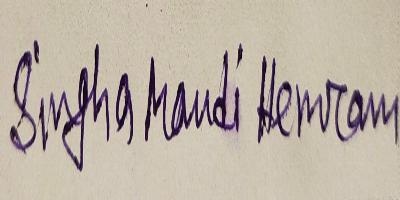 Singha Mandi Hemram